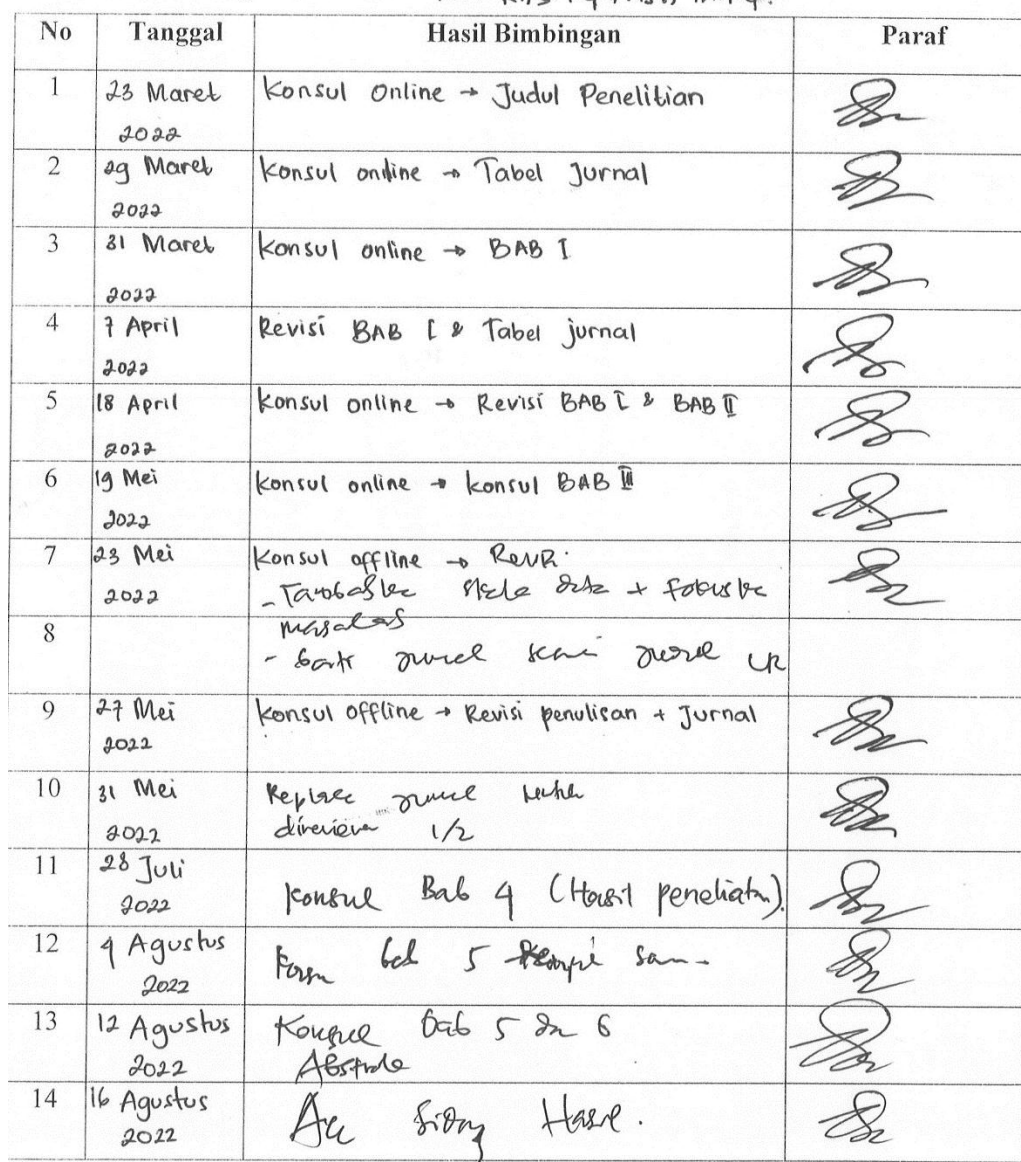 No Tanggal Hasil Bimbingan Paraf
1 23 Maret 2022 Konsul Online → Judul Penelitian
2 29 Maret 2022 Konsul online → Tabel Jurnal
3 31 Maret 2022 Konsul online → BAB I
4 7 April 2022 Revisi BAB I & Tabel jurnal
5 18 April 2022 Konsul online → Revisi BAB I & BAB II
6 19 Mei 2022 Konsul online → konsul BAB III
7 23 Mei 2022 Konsul offline →
- + 
masalah
8 -
9 27 Mei 2022 Konsul Offline → Revisi penulisan + Jurnal
10 31 Mei 2022
1/2
11 28 Juli 2022 Konsul Bab 4 (Hasil penelitian)
12 Agustus 2022 bab 5
13 12 Agustus 2022 Konsul bab 5 dan 6
Abstrak
14 16 Agustus 2022 Acc Sidang Hasil.